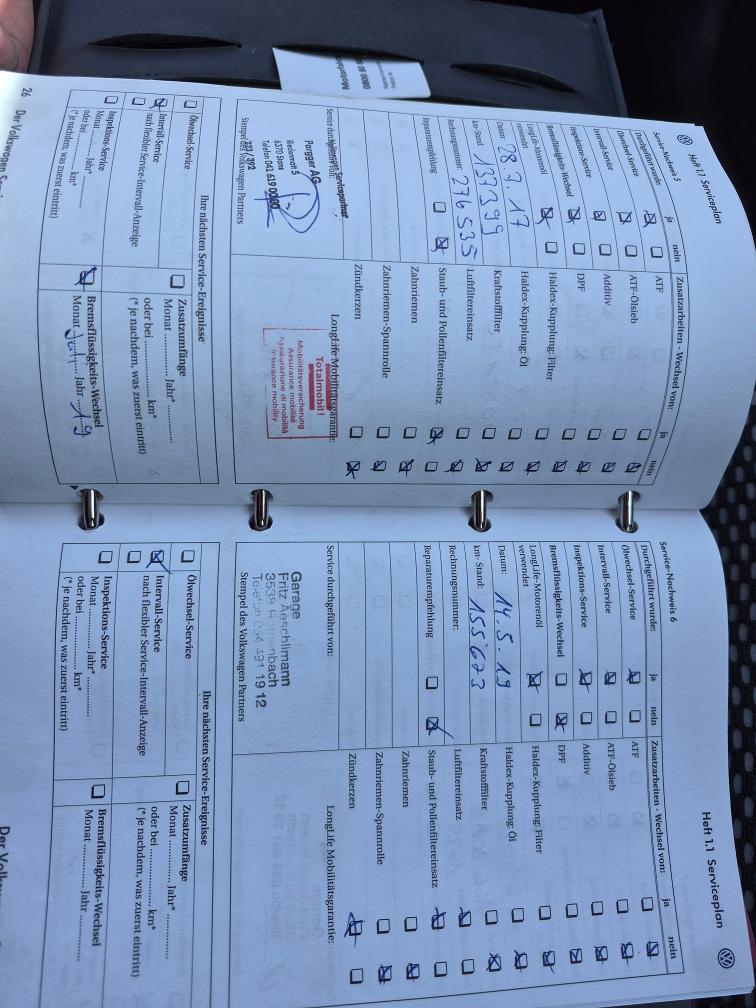 Heft 1.1 Serviceplan
Service-Nachweis 5
Durchgeführt wurde: ja nein
Ölwechsel-Service
Intervall-Service
Inspektions-Service
Bremsflüssigkeits-Wechsel
LongLife-Motorenöl
verwendet
Datum: 28.7.17
km-Stand: 137399
Rechnungsnummer: 276535
Reparaturempfehlung
Pargger AG
Riedenmatt 5
6370 Stans
Telefon 041 619
Stempel des Volkswagen Partners
Zusatzarbeiten - Wechsel von: ja nein
ATF
ATF-Ölsieb
Additiv
DPF
Haldex-Kupplung: Filter
Haldex-Kupplung: Öl
Kraftstofffilter
Luftfiltereinsatz
Staub- und Pollenfiltereinsatz
Zahnriemen
Zahnriemen-Spannrolle
Zündkerzen
LongLife Mobilitätsgarantie:
Totalmobil!
Mobilitätsversicherung
Assurance mobilité
Assicurazione di mobilità
Insurance mobility
Ihre nächsten Service-Ereignisse
Ölwechsel-Service
Intervall-Service
nach flexibler Service-Intervall-Anzeige
Inspektions-Service
Monat ........... Jahr* ...........
oder bei ........... km*
(* je nachdem, was zuerst eintritt)
Zusatzumfänge
Monat ........... Jahr* ...........
oder bei ........... km*
(* je nachdem, was zuerst eintritt)
Bremsflüssigkeits-Wechsel
Monat Juli Jahr 19
26 Der Volkswagen
Heft 1.1 Serviceplan
Service-Nachweis 6
Durchgeführt wurde: ja nein
Ölwechsel-Service
Intervall-Service
Inspektions-Service
Bremsflüssigkeits-Wechsel
LongLife-Motorenöl
verwendet
Datum: 14.5.19
km-Stand: 155'673
Rechnungsnummer:
Reparaturempfehlung
Service durchgeführt von:
Garage
Fritz Aeschlimann
Stempel des Volkswagen Partners
Zusatzarbeiten - Wechsel von: ja nein
ATF
ATF-Ölsieb
Additiv
DPF
Haldex-Kupplung: Filter
Haldex-Kupplung: Öl
Kraftstofffilter
Luftfiltereinsatz
Staub- und Pollenfiltereinsatz
Zahnriemen
Zahnriemen-Spannrolle
Zündkerzen
LongLife Mobilitätsgarantie:
Ihre nächsten Service-Ereignisse
Ölwechsel-Service
Intervall-Service
nach flexibler Service-Intervall-Anzeige
Inspektions-Service
Monat ........... Jahr* ...........
oder bei ........... km*
(* je nachdem, was zuerst eintritt)
Zusatzumfänge
Monat ........... Jahr* ...........
oder bei ........... km*
(* je nachdem, was zuerst eintritt)
Bremsflüssigkeits-Wechsel
Monat ........... Jahr ...........